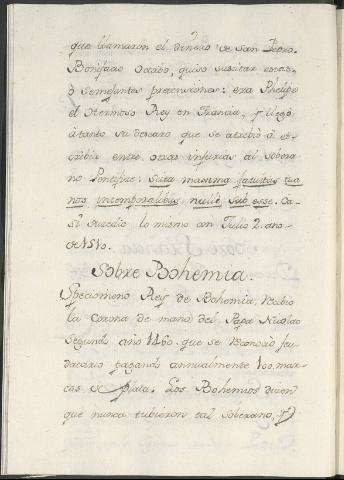 que llamaron el dinero de San Pedro.
Bonifacio Octabo, quiso suscitar
ò semejantes pretensiones: era Phelipe
el Hermoso Rey en Francia, y llegò
à tanto su descaro que se atribiò à es-
cribir entre otras injurias al sobera-
no Pontifize: Scita maxima fatuitas tua
nos intemporalibus nulli sub esse. Ca-
si suzedio lo mismo con Julio 2. año
de 1510.
Sobre Bohemia.
Specimeno Rey de Bohemia, recibio
la corona de mano del Papa Nicolao
Segundo año 1460. que se reconociò feu-
datario pagando annualmente 100. mar-
cas de plata. Los Bohemios dicen
que nunca tubieron tal soberano, y